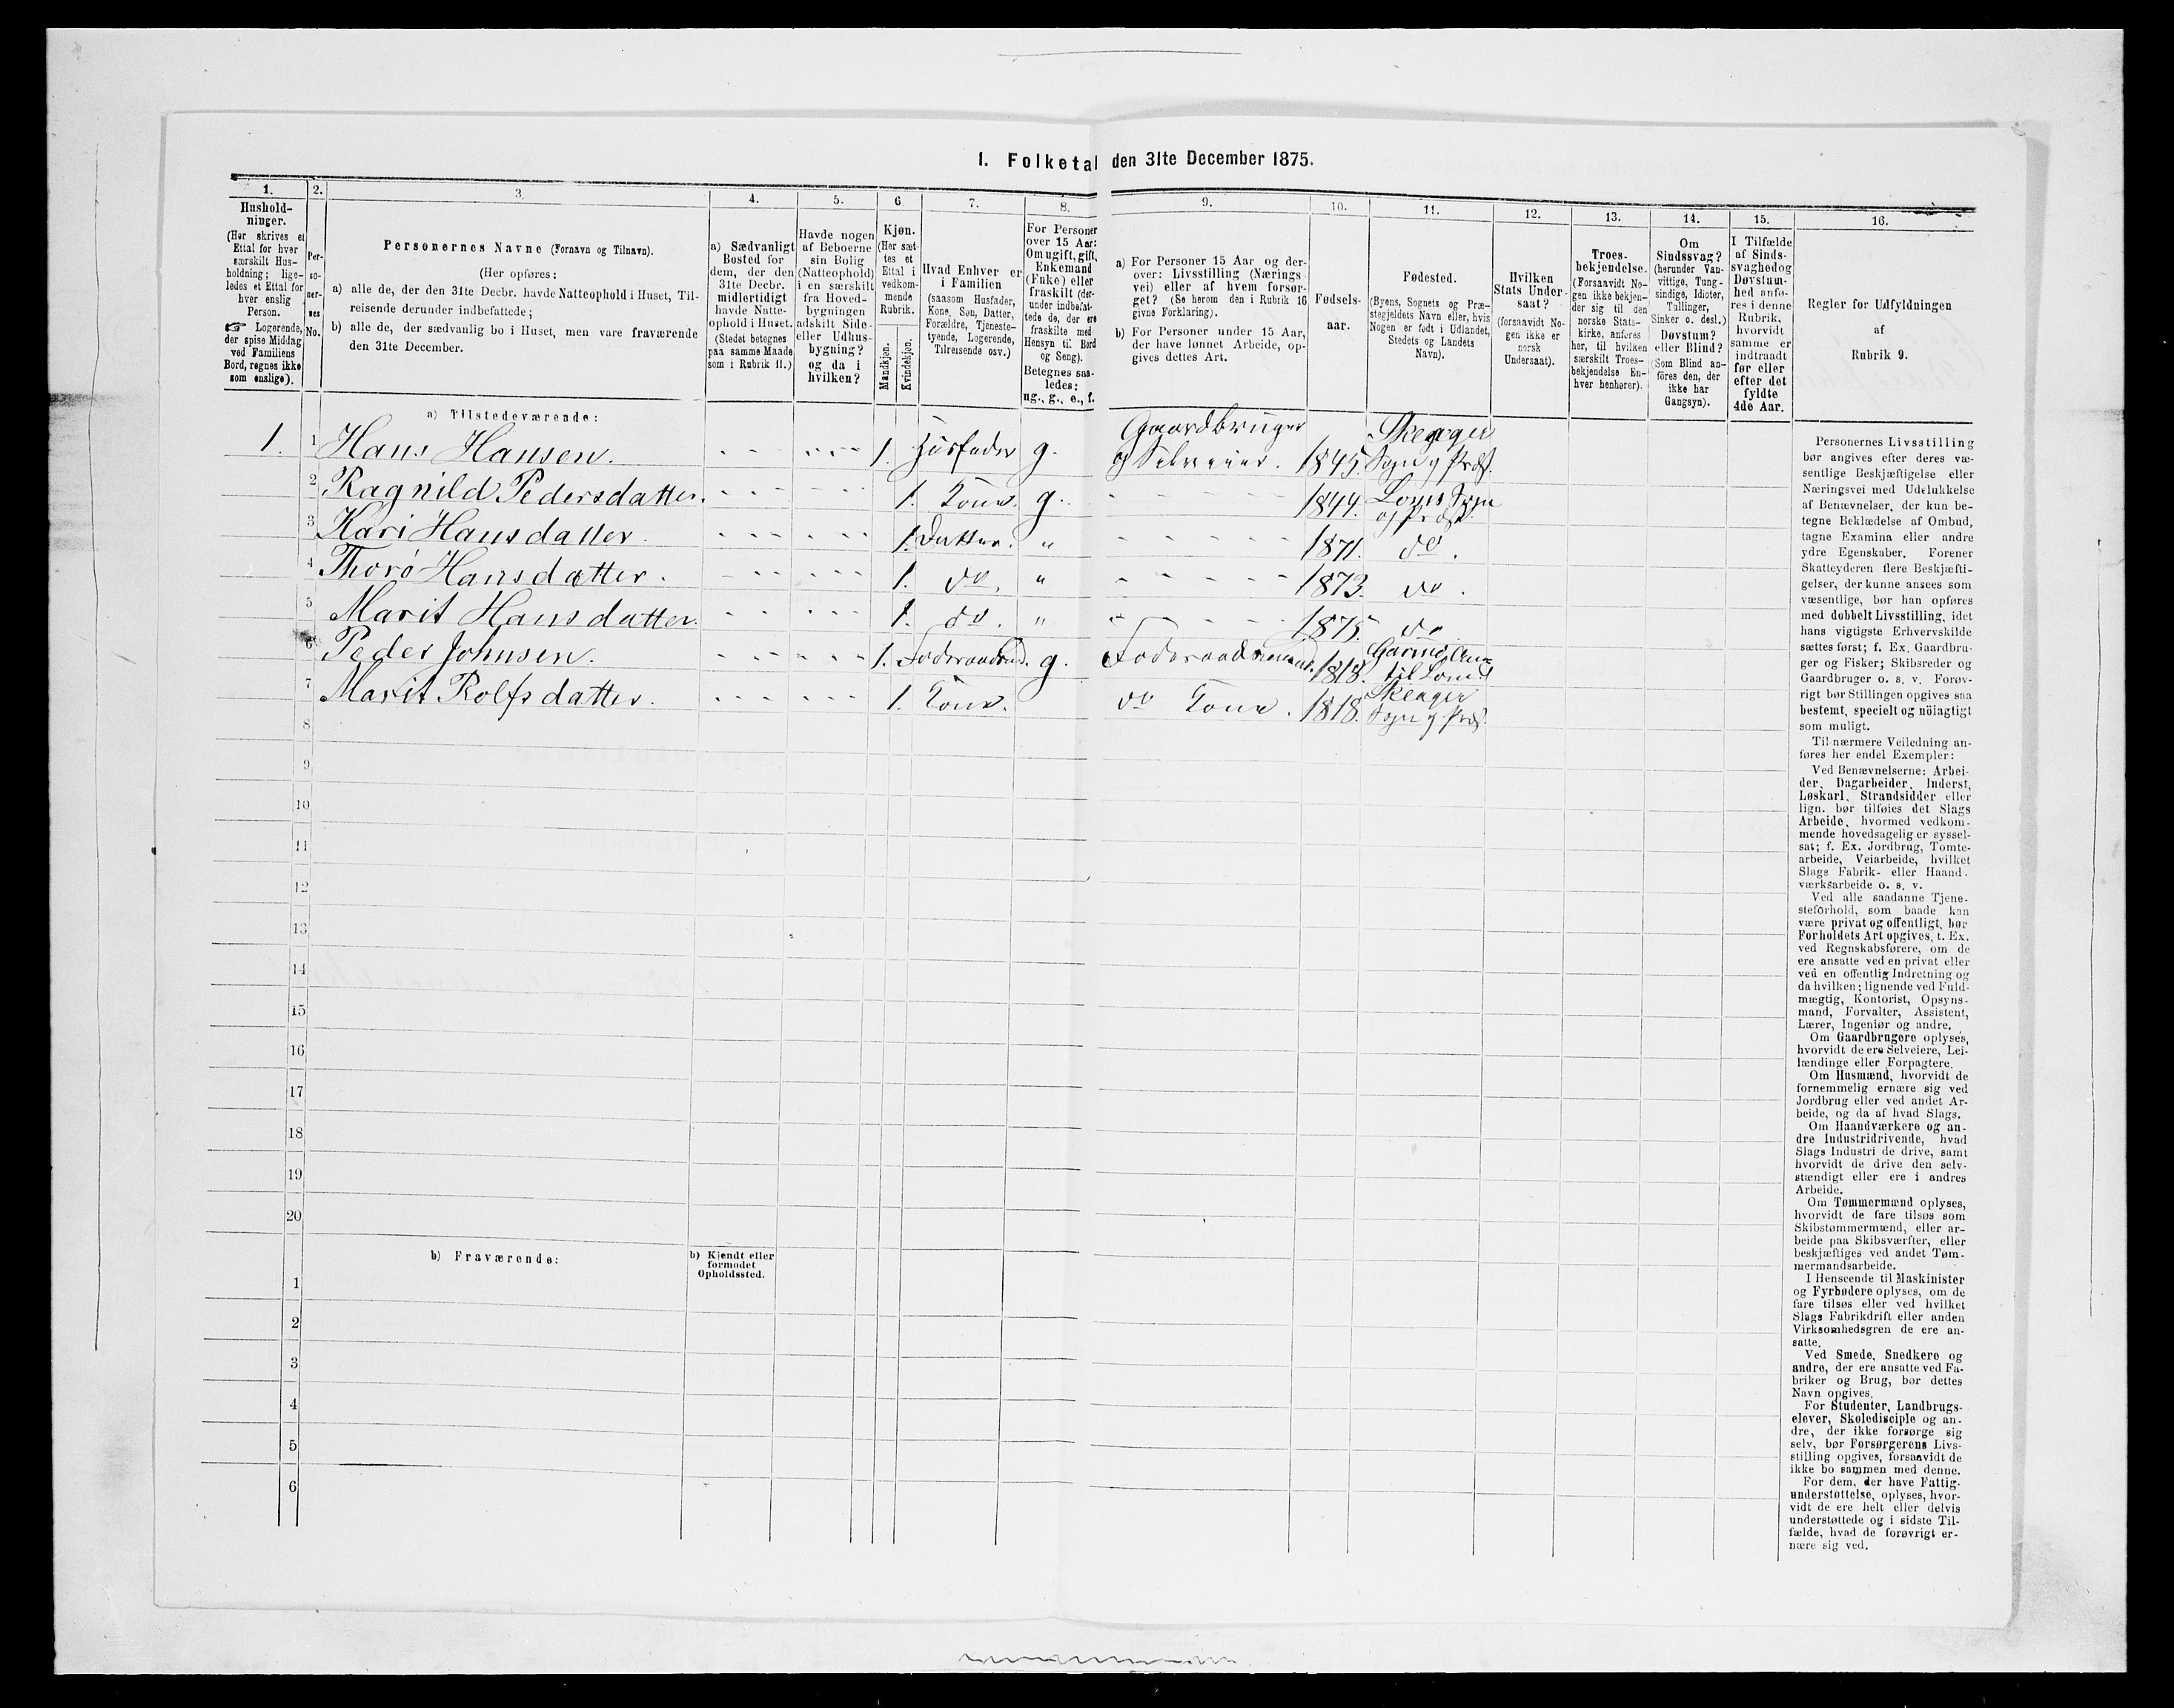 1. Folketal den 31te December 1875.
1.
2.
3.
4.
5.
6.
7.
8.
9.
10.
11.
12.
13.
14.
15.
16.
Hushold-
ninger.
(Her skrives et
Ettal for hver
særskilt Hus-
holdning; lige-
ledes et Ettal for
hver enslig
Person.
☞ Logerende,
der spise Middag
ved Familiens
Bord, regnes ikke
som enslige).
Per-
so-
ner-
nes
No.
Personernes Navne (Fornavn og Tilnavn).
(Her opføres:
a) alle de, der den 31te Decbr. havde Natteophold i Huset, Til-
reisende derunder indbefattede;
b) alle de, der sædvanlig bo i Huset, men vare fraværende
den 31te December.
a) Sædvanligt
Bosted for
dem, der den
31te Decbr.
midlertidigt
havde Natte-
ophold i Huset.
(Stedet betegnes
paa samme Maade
som i Rubrik 11.)
Havde nogen
af Beboerne
sin Bolig
(Natteophold)
i en særskilt
fra Hoved-
bygningen
adskilt Side-
eller Udhus-
bygning?
og da i
hvilken?
Kjøn.
(Her sæt-
tes et
Ettal i
vedkom-
mende
Rubrik.
Mandkjøn.
Kvindekjøn.
Hvad Enhver er
i Familien
(saasom Husfader,
Kone, Søn, Datter,
Forældre, Tjeneste-
tyende, Logerende,
Tilreisende osv.)
For Personer
over 15 Aar:
Om ugift, gift,
Enkemand
(Enke) eller
fraskilt (der-
under indbefat-
tede de, der ere
fraskilte med
Hensyn til Bord
og Seng).
Betegnes saa-
ledes:
ug., g., e., f.
a) For Personer 15 Aar og der-
over: Livsstilling (Nærings-
vei) eller af hvem forsør-
get? (Se herom den i Rubrik 16
givne Forklaring).
b) For Personer under 15 Aar,
der have lønnet Arbeide, op-
gives dettes Art.
Fødsels-
aar.
Fødested.
(Byens, Sognets og Præ-
stegjeldets Navn eller, hvis
Nogen er født i Udlandet,
Stedets og Landets
Navn).
Hvilken
Stats Under-
saat?
(forsaavidt No-
gen ikke er
norsk
Undersaat).
Troes-
bekjendelse.
(Forsaavidt No-
gen ikke bekjen-
der sig til den
norske Stats-
kirke, anføres
her, til hvilken
særskilt Troes-
bekjendelse En-
hver henhører).
Om
Sindssvag?
(herunder Van-
vittige, Tung-
sindige, Idioter,
Tullinger,
Sinker o. desl.)
Døvstum?
eller Blind?
(Som Blind an-
føres den, der
ikke har
Gangsyn).
I Tilfælde
af Sinds-
svaghed og
Døvstum-
hed anfø-
res i denne
Rubrik,
hvorvidt
samme er
indtraadt
før eller
efter det
fyldte
4de Aar.
Regler for Udfyldningen
af
Rubrik 9.
a) Tilstedeværende:
1. 1 Hans Hansen. 1. Husfader g. Gaardbruger og Selveier. 1845. Skeager Sogn og Præst.
2 Ragnild Pedersdatter. 1. Kone g. 1844. Loms Sogn og Præst.
3 Kari Hansdatter. 1. Datter. " 1871. do.
4 Thorø Hansdatter. 1. do. " 1873. do.
5 Marit Hansdatter. 1. do. " 1875. do
6 Peder Johnsen. 1. g. 1818. til Lom
7 Marit Rolfsdatter. 1. Kone. do Kone. 1818. Skeager Sogn og Præst.
8
9
10
11
12
13
14
15
16
17
18
19
20
b) Fraværende:
b) Kjendt eller
formodet
Opholdssted.
1
2
3
4
5
6
Personernes Livsstilling
bør angives efter deres væ-
sentlige Beskjæftigelse eller
Næringsvei med Udelukkelse
af Benævnelser, der kun be-
tegne Beklædelse af Ombud,
tagne Examina eller andre
ydre Egenskaber. Forener
Skatteyderen flere Beskjæfti-
gelser, der kunne ansees som
væsentlige, bør han opføres
med dobbelt Livsstilling, idet
hans vigtigste Erhvervskilde
sættes først; f. Ex. Gaardbru-
ger og Fisker; Skibsreder og
Gaardbruger o. s. v. Forøv-
rigt bør Stillingen opgives saa
bestemt, specielt og nöiagtigt
som muligt.
Til nærmere Veiledning an-
føres her endel Exempler:
Ved Benævnelserne: Arbei-
der, Dagarbeider, Inderst,
Løskarl, Strandsidder eller
lign. bør tilføies det Slags
Arbeide, hvormed vedkom-
mende hovedsagelig er syssel-
sat; f. Ex. Jordbrug, Tomte-
arbeide, Veiarbeide, hvilket
Slags Fabrik- eller Haand-
værksarbeide o. s. v.
Ved alle saadanne Tjene-
steforhold, som baade kan
være privat og offentligt, bør
Forholdets Art opgives, t. Ex.
ved Regnskabsførere, om de
ere ansatte ved en privat eller
ved en offentlig Indretning og
da hvilken; lignende ved Fuld-
mægtig, Kontorist, Opsyns-
mand, Forvalter, Assistent,
Lærer, Ingeniør og andre.
Om Gaardbrugere oplyses,
hvorvidt de ere Selveiere, Lei-
lændinge eller Forpagtere.
Om Husmænd, hvorvidt de
fornemmelig ernære sig ved
Jordbrug eller ved andet Ar-
beide, og da af hvad Slags.
Om Haandværkere og an-
dre Industridrivende, hvad
Slags Industri de drive, samt
hvorvidt de drive den selv-
stændigt eller ere i andres
Arbeide.
Om Tømmermænd oplyses,
hvorvidt de fare tilsøs som
Skibstømmermænd, eller ar-
beide paa Skibsværfter, eller
beskjæftiges ved andet Tøm-
mermandsarbeide.
I Henseende til Maskinister
og Fyrbødere oplyses, om de
fare tilsøs eller ved hvilket
Slags Fabrikdrift eller anden
Virksomhedsgren de ere an-
satte.
Ved Smede, Snedkere og
andre, der ere ansatte ved Fa-
briker og Brug, bør dettes
Navn opgives.
For Studenter, Landbrugs-
elever, Skoledisciple og an-
dre, der ikke forsørge sig
selv, bør Forsørgerens Livs-
stilling opgives, forsaavidt de
ikke bo sammen med denne.
For dem, der have Fattig-
understøttelse, oplyses, hvor-
vidt de ere helt eller delvis
understøttede og i sidste Til-
fælde, hvad de forøvrigt er-
nære sig ved.